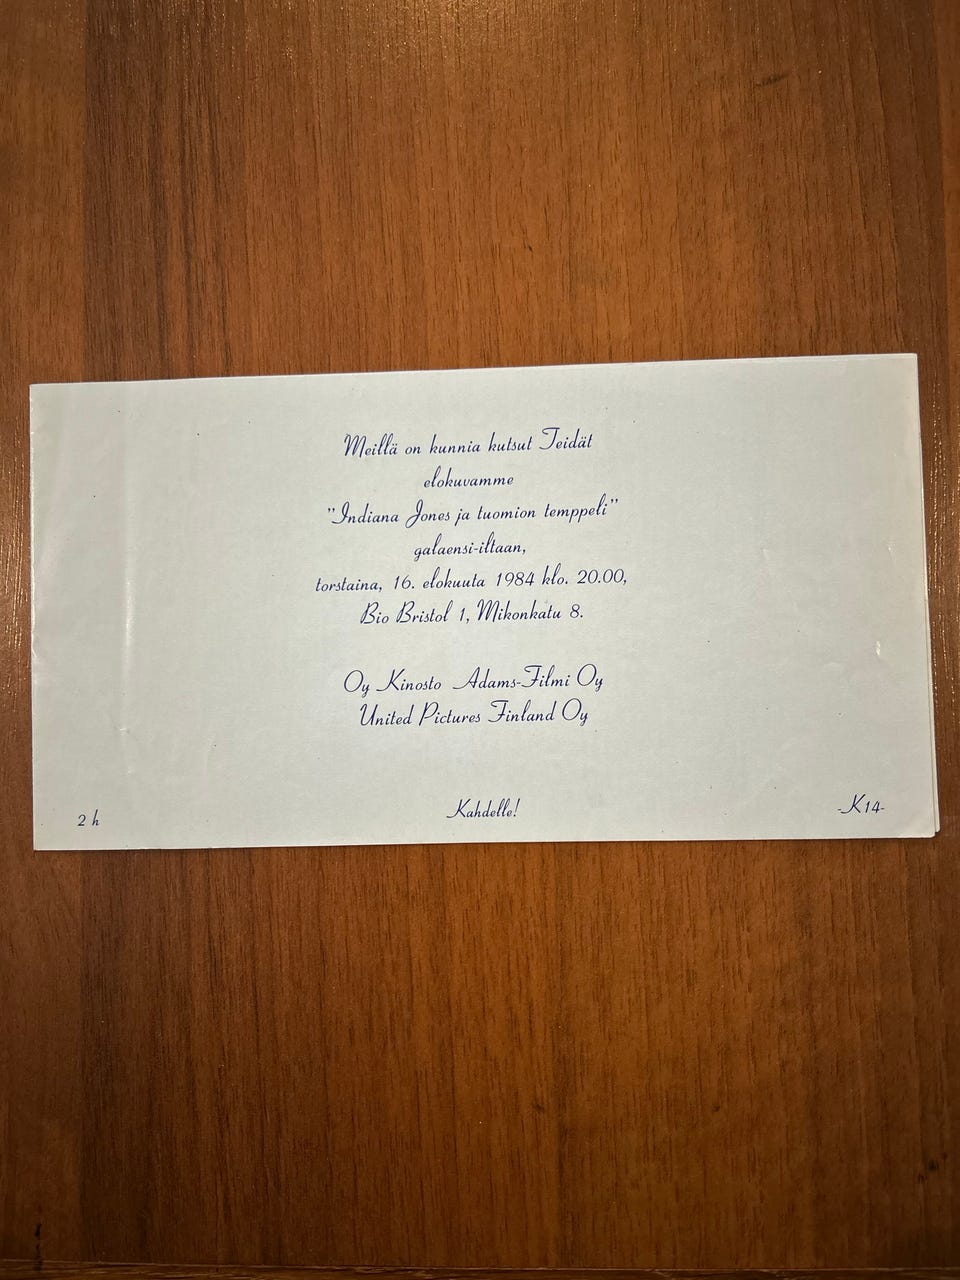 Meillä on kunnia kutsut Teidät
elokuvamme
"Indiana Jones ja tuomion temppeli"
galaensi-iltaan,
torstaina, 16. elokuuta 1984 klo. 20.00,
Bio Bristol 1, Mikonkatu 8.
Oy Kinosto Adams-Filmi Oy
United Pictures Finland Oy
2 h Kahdelle! -K14-